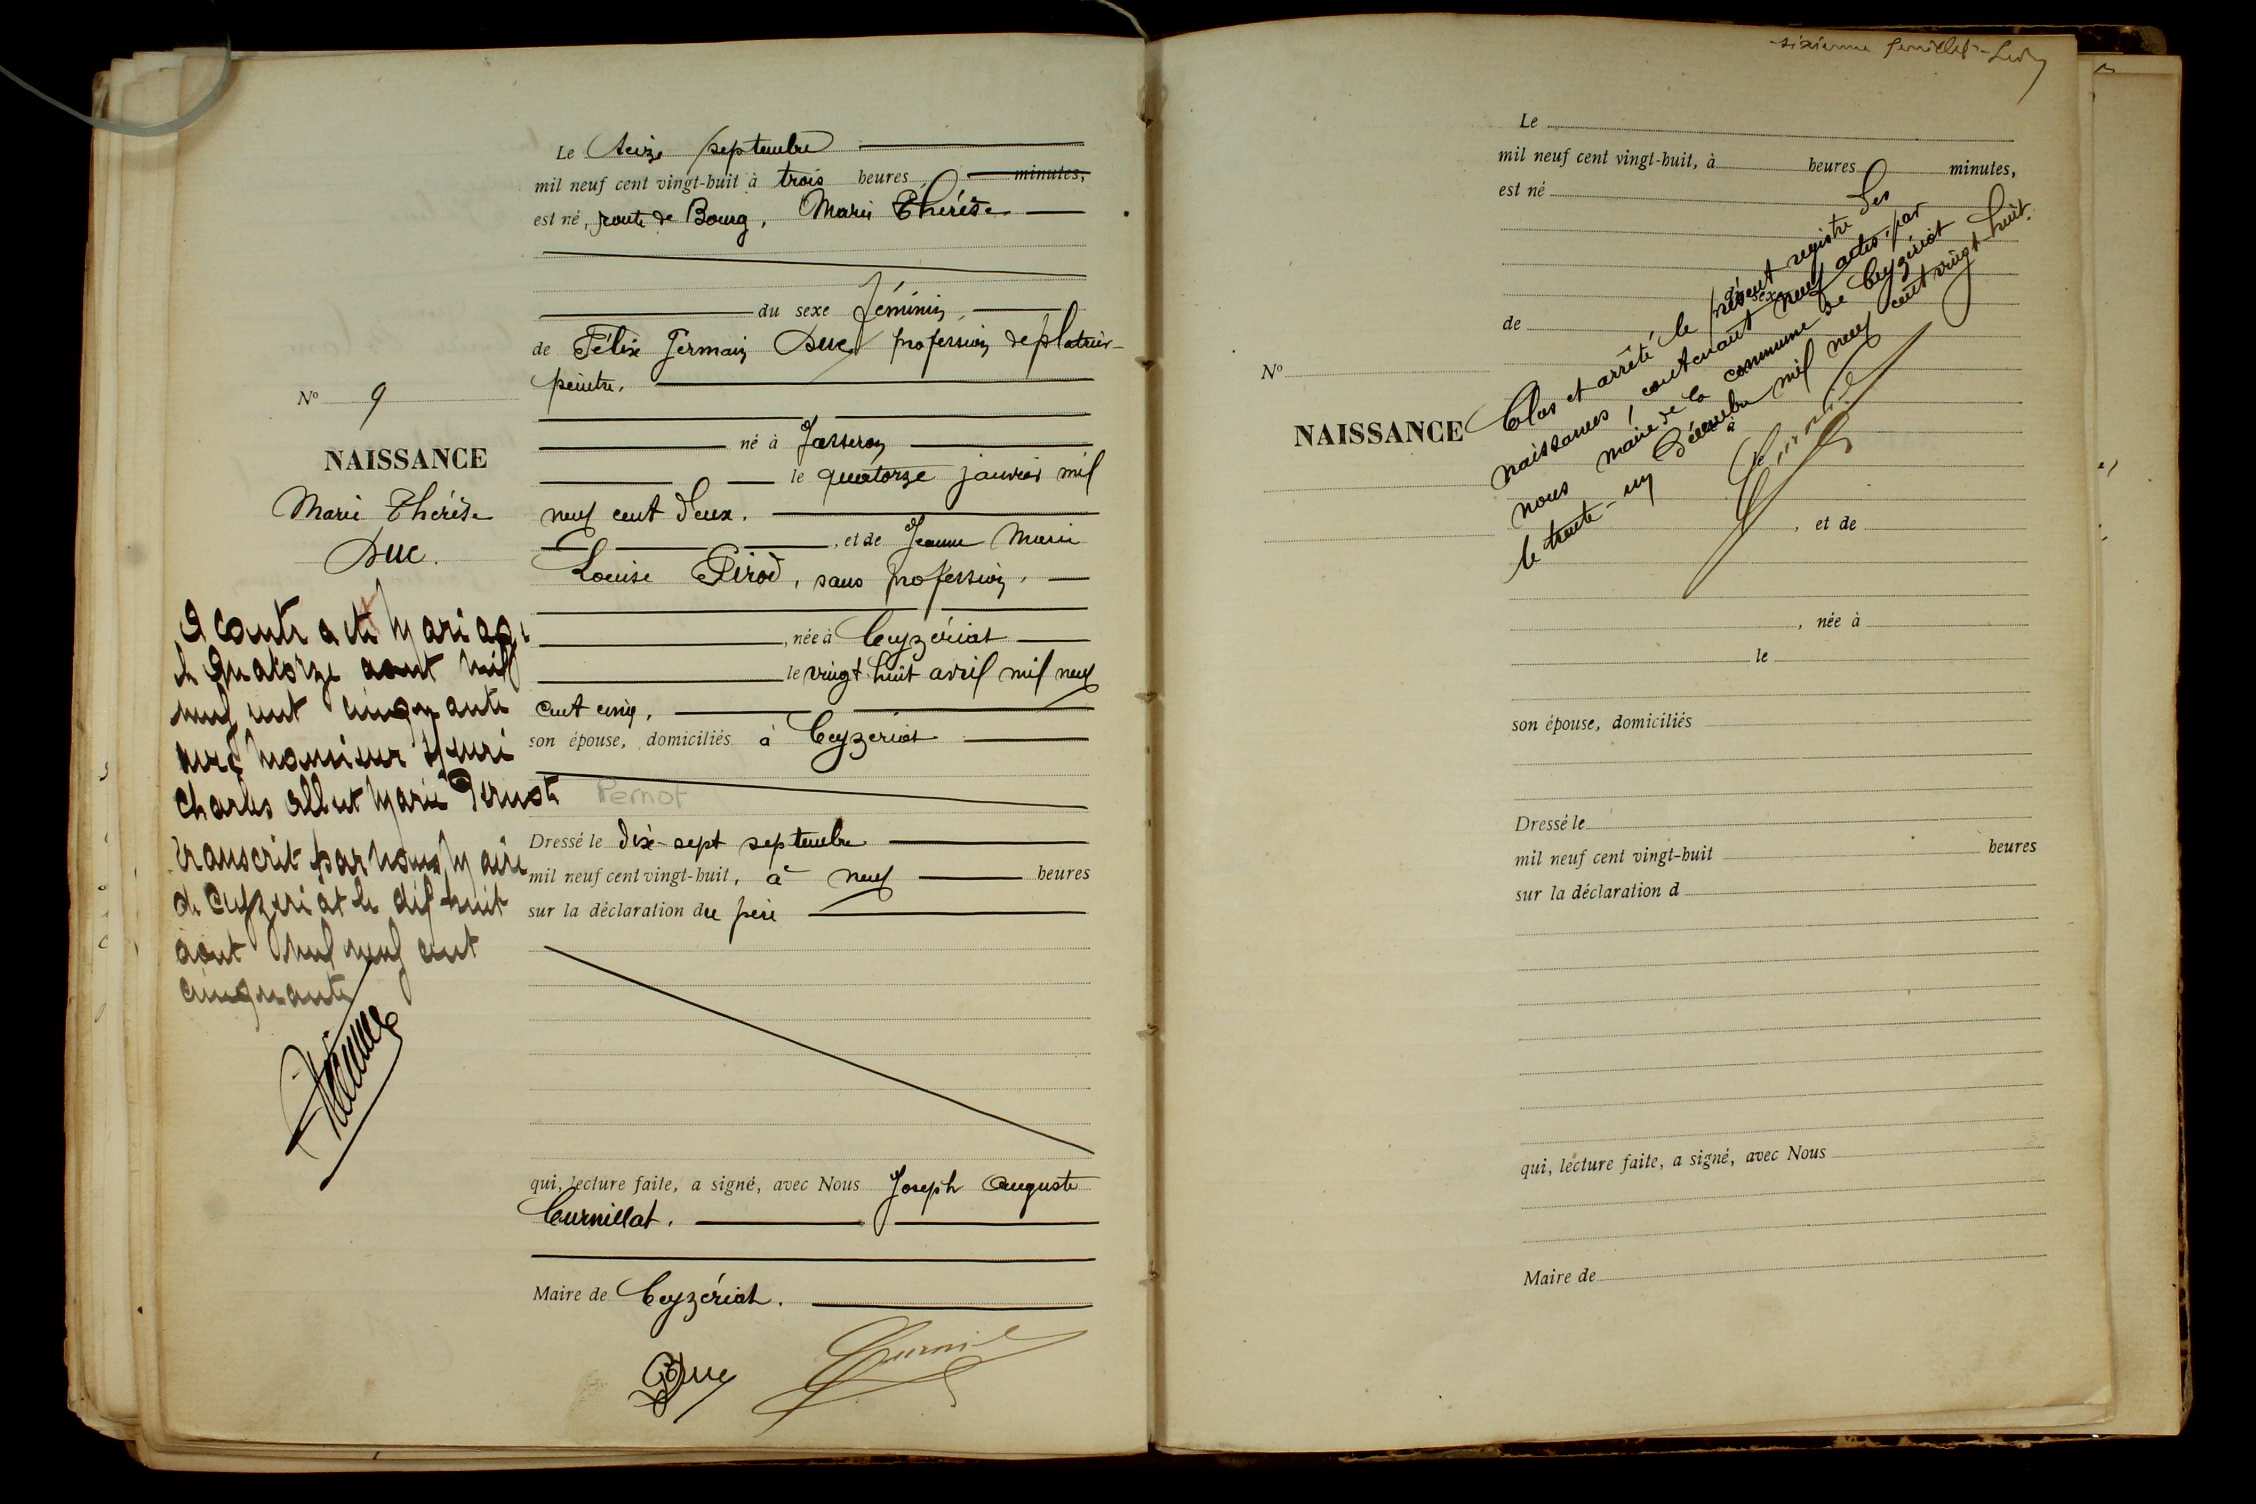 Le seize septembre
mil neuf cent vingt-huit à trois heures minutes,
est né, route de Bourg, Marie Thérèse
du sexe féminin,
de Félix Germain Duc, profession de platrier-
peintre.
né à Jasseron
le quatorze janvier mil
neuf cent deux.
, et de Jeanne Marie
Louise Pirod, sans profession,
, née à Ceyzériat
le vingt huit avril mil neuf
cent cinq,
son épouse, domiciliés à Ceyzériat
Dressé le dix-sept septembre
mil neuf cent vingt-huit, à neuf heures
sur la déclaration du père
qui, lecture faite, a signé, avec Nous Joseph Auguste
Curnillat.
Maire de Ceyzériat.
Duc
N° 9
NAISSANCE
Marie Thérèse
Duc.
A contracté mariage
le quatorze aout mil
neuf cent cinquante
avec monsieur Henri
Charles Albert Marie Pernot
Pernot
transcrit par nous, maire
de Ceyzériat le dix huit
aout mil neuf cent
cinquante
sixième feuillet
Le
mil neuf cent vingt-huit, à heures minutes,
est né
du sexe
de
N°
NAISSANCE
Clos et arrêté le présent registre des
naissances, contenant neuf actes, par
nous maire de la commune de Ceyzériat
le trente-un Décembre mil neuf cent vingt-huit.
né à
, et de
, née à
le
son épouse, domiciliés
Dressé le
mil neuf cent vingt-huit heures
sur la déclaration d
qui, lecture faite, a signé, avec Nous
Maire de